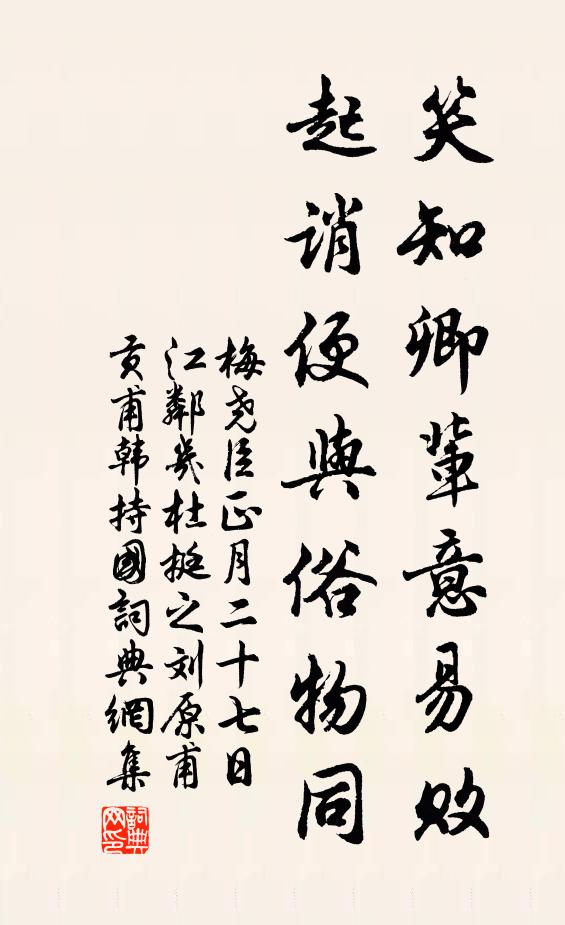 笑知卿輩意易败
起誚便與俗物同
梅堯臣正月二十七日
江鄰幾杜挺之刘原甫
贡甫韩持國詞典網集
詞典网印